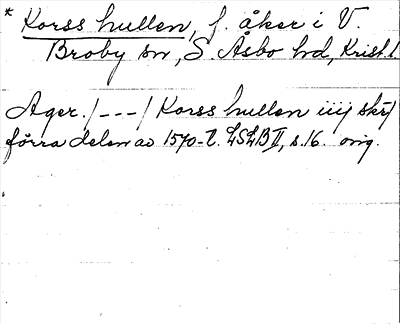 * Korss hullen, f. åker i V.
Broby sn, S. Åsbo hd, Krist. l.
Ager. /---/ Korss hullen iiij skr
förra delen av 1570-t. LSLB II, s. 16. orig.